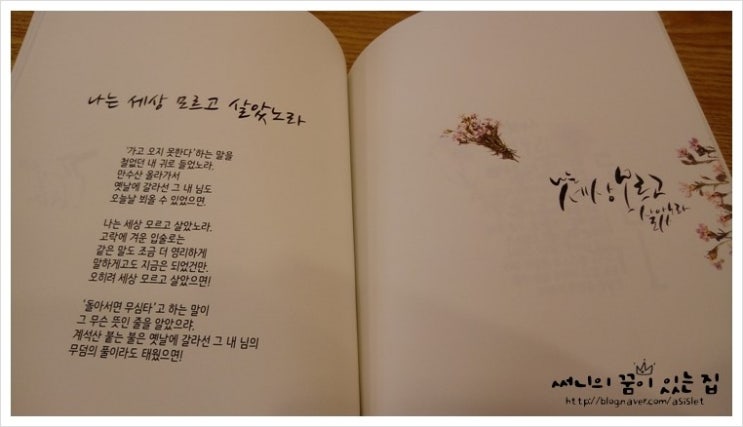 나는 세상 모르고 살았노라
'가고 오지 못한다'하는 말을
철없던 내 귀로 들었노라.
만수산 올라가서
옛날에 갈라선 그 내 님도
오늘날 뵈올 수 있었으면.
나는 세상 모르고 살았노라.
고락에 겨운 입술로는
같은 말도 조금 더 영리하게
말하게고도 지금은 되었건만.
오히려 세상 모르고 살았으면!
'돌아서면 무심타'고 하는 말이
그 무슨 뜻인 줄을 알았으랴.
계석산 붙는 불은 옛날에 갈라선 그 내 님의
무덤의 풀이라도 태웠으면!
나는 세상 모르고
살았노라
써니의 꿈이 있는 집
http://blog.naver.com/asislet